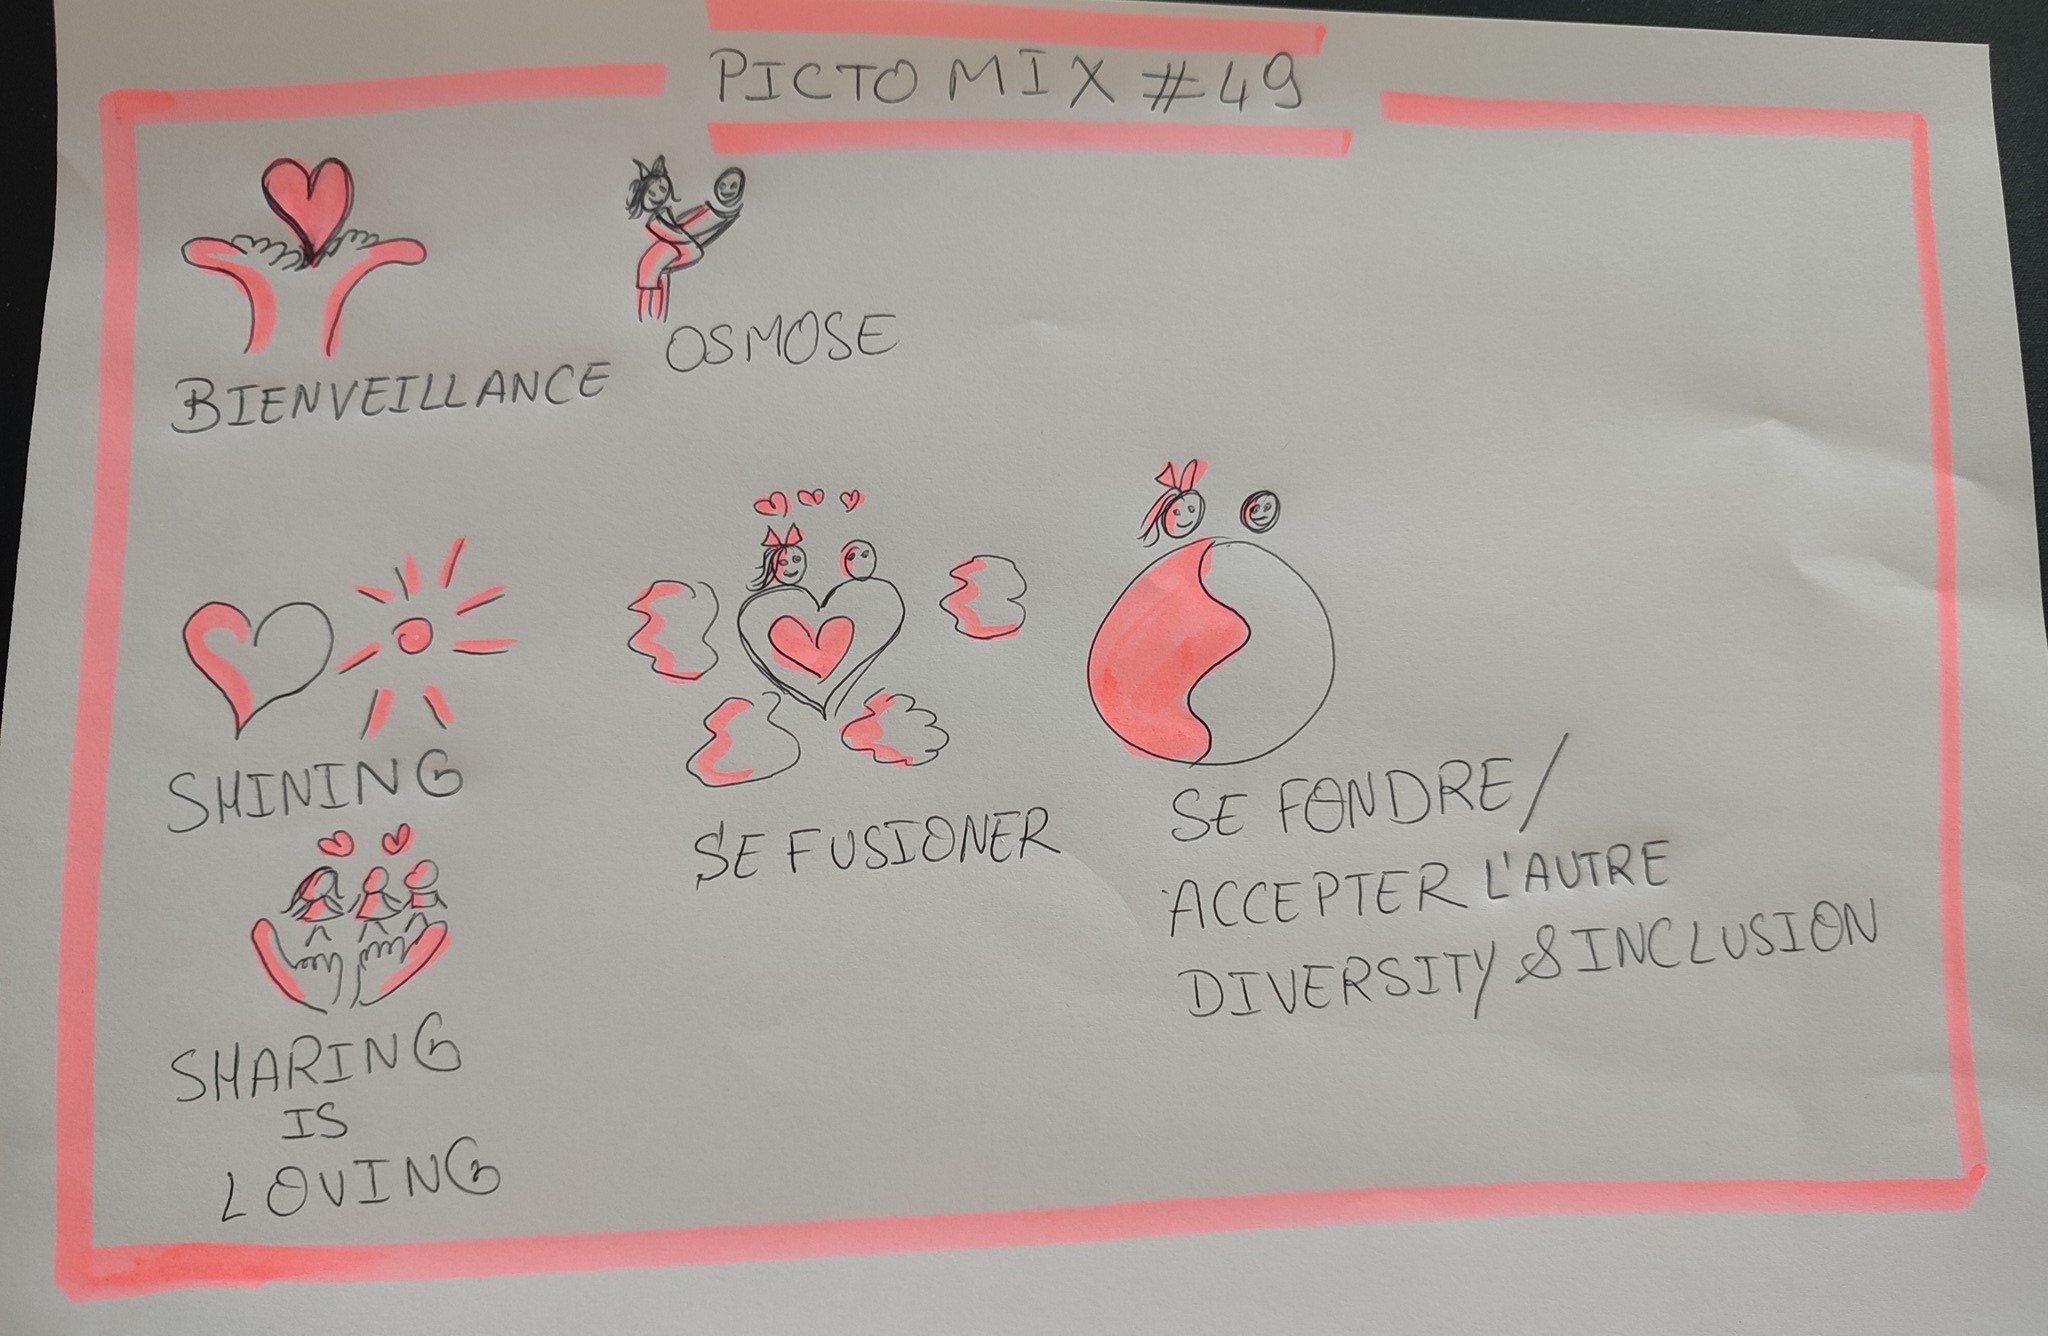 PICTO MIX #49
BIENVEILLANCE
OSMOSE
SHINING
SE FUSIONER
SE FONDRE/
ACCEPTER L'AUTRE
DIVERSITY & INCLUSION
SHARING
IS
LOVING